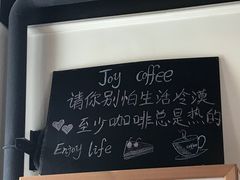 Joy coffee
请你别怕生活冷漠
至少咖啡总是热的
Enjoy life